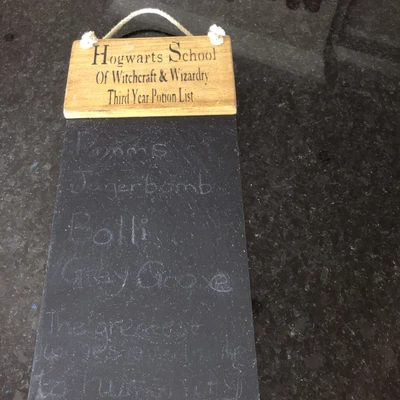 Hogwarts School
Of Witchcraft & Wizardry
Third Year Potion List
Pimms
Jagerbomb
Bolli
Grey Goose
The greatest
to